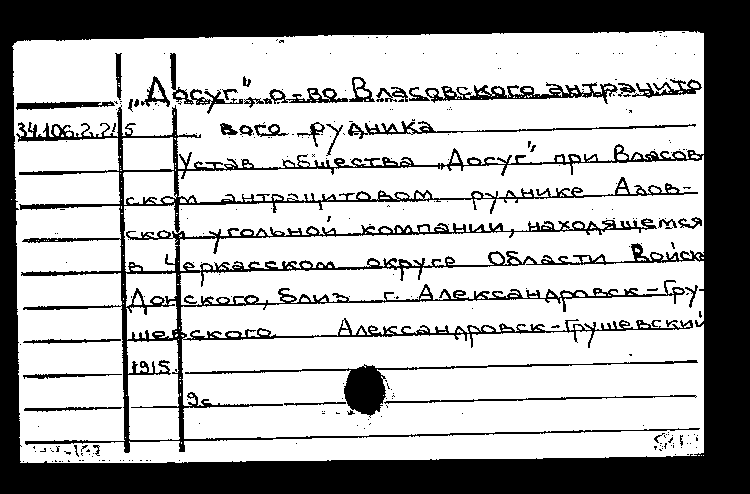 „Досуг", о-во Власовского антрацито
34.106.2.215 вого рудника
Устав общества „Досуг" при Власов-
ском антрацитовом руднике Азов-
ской угольной компании, находящемся
в Черкасском округе Области Войск
Донского, близ г. Александровск-Гру-
шевского Александровск-Грушевский
1915.
9с.